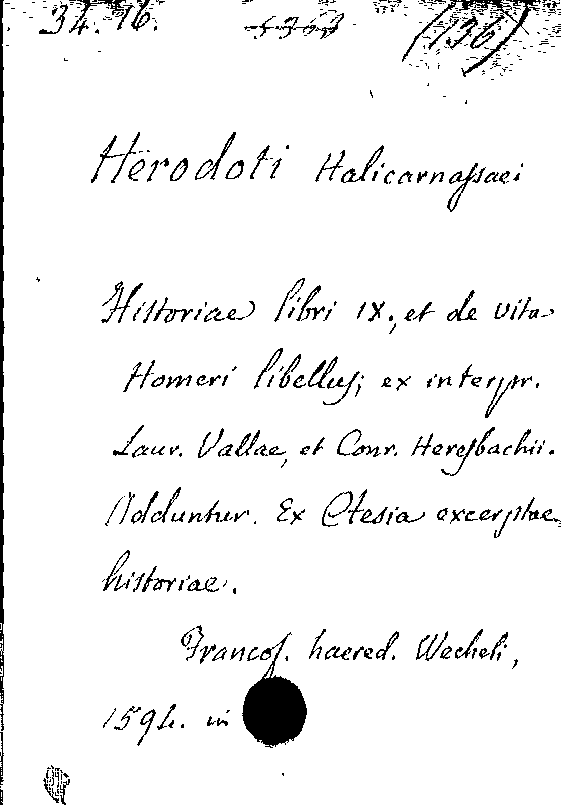 34. 16. (136)
Herodoti Halicarnassaei
Historiae libri IX., et de vita
Homeri libellus; ex interpr.
Laur. Vallae, et Conr. Heresbachii.
Adduntur. Ex Ctesia excerptae
historiae.
Francof. haered. Wecheli,
1594. in